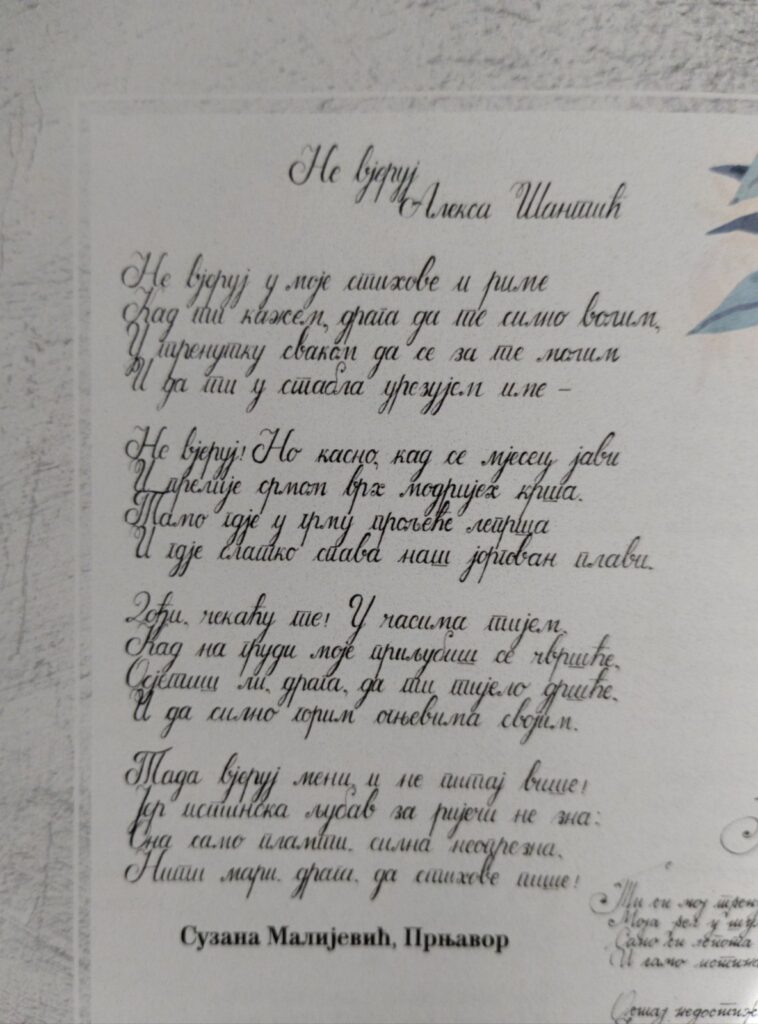 Не вјеруј
Алекса Шантић
Не вјеруј у моје стихове и риме
Кад ти кажем, драга да те силно волим,
У тренутку сваком да се за те молим
И да ти у стабла урезујем име –
Не вјеруј! Но касно, кад се мјесец јави
И прелије срмом врх модријех крша.
Тамо гдје у грму прољеће лепрша
И гдје слатко спава наш јоргован плави.
Дођи, чекаћу те! У часима тијем,
Кад на груди моје приљубиш се чвршће,
Осјетиш ли, драга, да ти тијело дршће,
И да силно горим огњевима својим.
Тада вјеруј мени, и не питај више!
Јер истинска љубав за ријечи не зна:
Она само пламти, силна неодрезна,
Нити мари, драга, да стихове пише!
Сузана Малијевић, Прњавор
Ти си мој
Моја реч у
Само си лепота
И само